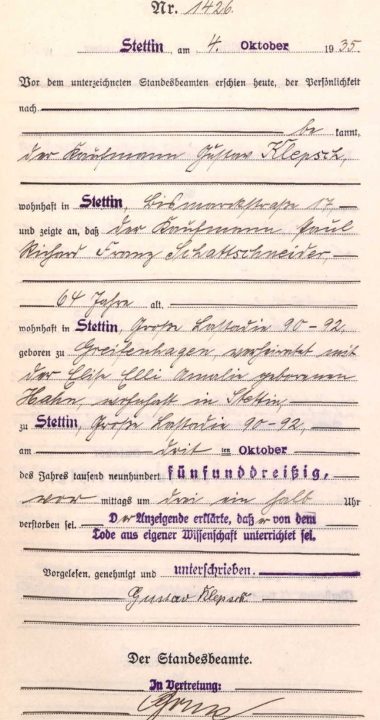 Nr. 1426.
Stettin, am 4. Oktober 1935.
Vor dem unterzeichneten Standesbeamten erschien heute, der Persönlichkeit
nach
be kannt,
der Kaufmann Gustav Klepsch,
wohnhaft in Stettin, Bismarckstraße 17,
und zeigte an, daß der Kaufmann Paul
Richard Franz Schattschneider,
64 Jahre alt,
wohnhaft in Stettin, Große Lastadie 90-92,
geboren zu Greifenhagen, verheiratet mit
der Elise Elli Amalie geborenen
Hahn, wohnhaft in Stettin,
zu Stettin, Große Lastadie 90-92,
am ten Oktober
des Jahres tausend neunhundert fünfunddreißig,
vor mittags um drei ein halb Uhr
verstorben sei. Der Anzeigende erklärte, daß er von dem
Tode aus eigener Wissenschaft unterrichtet sei.
Vorgelesen, genehmigt und unterschrieben.
Gustav Klepsch
Der Standesbeamte.
In Vertretung: